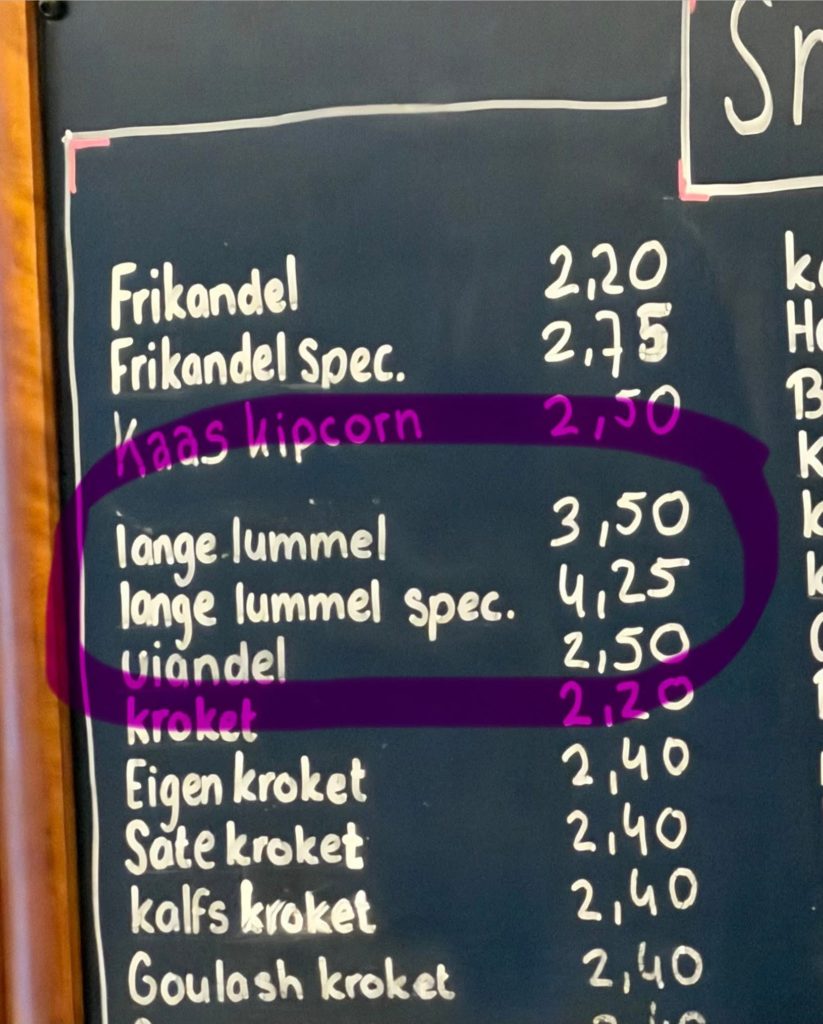 Sn
Frikandel 2,20
Frikandel Spec. 2,75
Kaas kipcorn 2,50
lange lummel 3,50
lange lummel spec. 4,25
viandel 2,50
kroket 2,20
Eigen kroket 2,40
Sate kroket 2,40
kalfs kroket 2,40
Goulash kroket 2,40